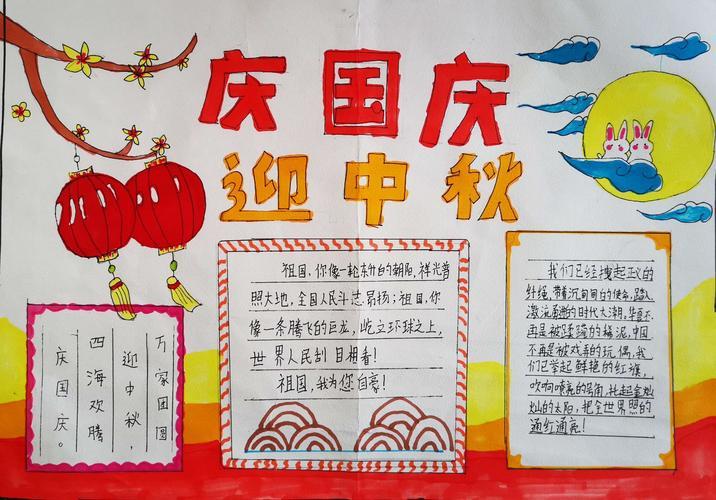 庆国庆
迎中秋
万家团圆
迎中秋，
四海欢腾
庆国庆。
祖国，你像一轮东升的朝阳，祥光普
照大地，全国人民斗志昂扬；祖国，你
像一条腾飞的巨龙，屹立环球之上，
世界人民刮目相看！
祖国，我为您自豪！
我们已经拽起正义的
纤绳，带着沉甸甸的使命，踏入
激流奔涌的时代大潮，华夏不
再是被蹂躏的稀泥，中国
不再是被戏弄的玩偶，我
们已举起鲜艳的红旗，
吹响嘹亮的号角，托起金灿
灿的太阳，把全世界照的
通红通亮！